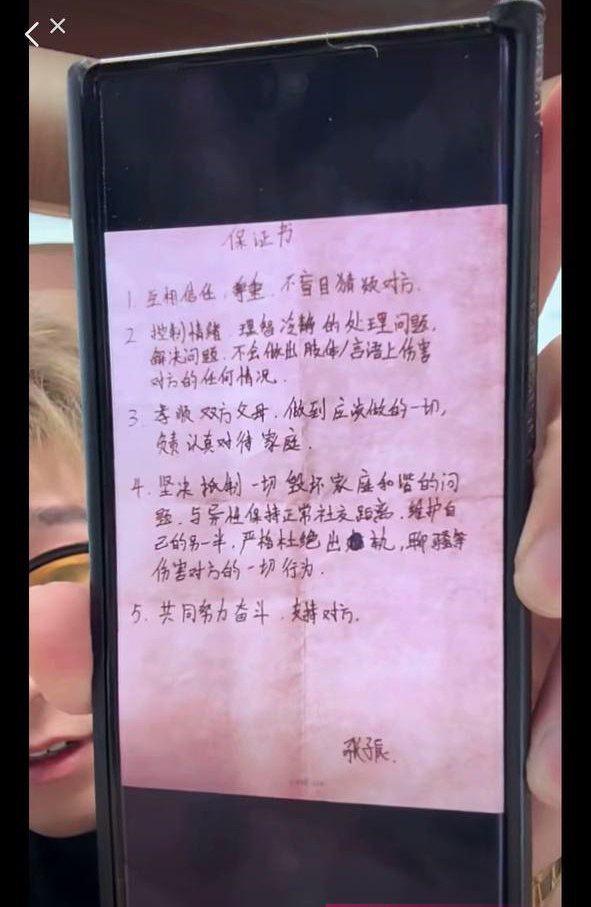 保证书
1. 互相信任，尊重，不盲目猜疑对方.
2 控制情绪 理智冷静的处理问题,
解决问题. 不会做出肢体/言语上伤害
对方的任何情况.
3. 孝顺双方父母. 做到应该做的一切,
负责认真对待家庭.
4. 坚决抵制一切毁坏家庭和谐的问
题. 与异性保持正常社交距离. 维护自
己的另一半. 严格杜绝出轨, 聊骚等
伤害对方的一切行为.
5. 共同努力奋斗. 支持对方.